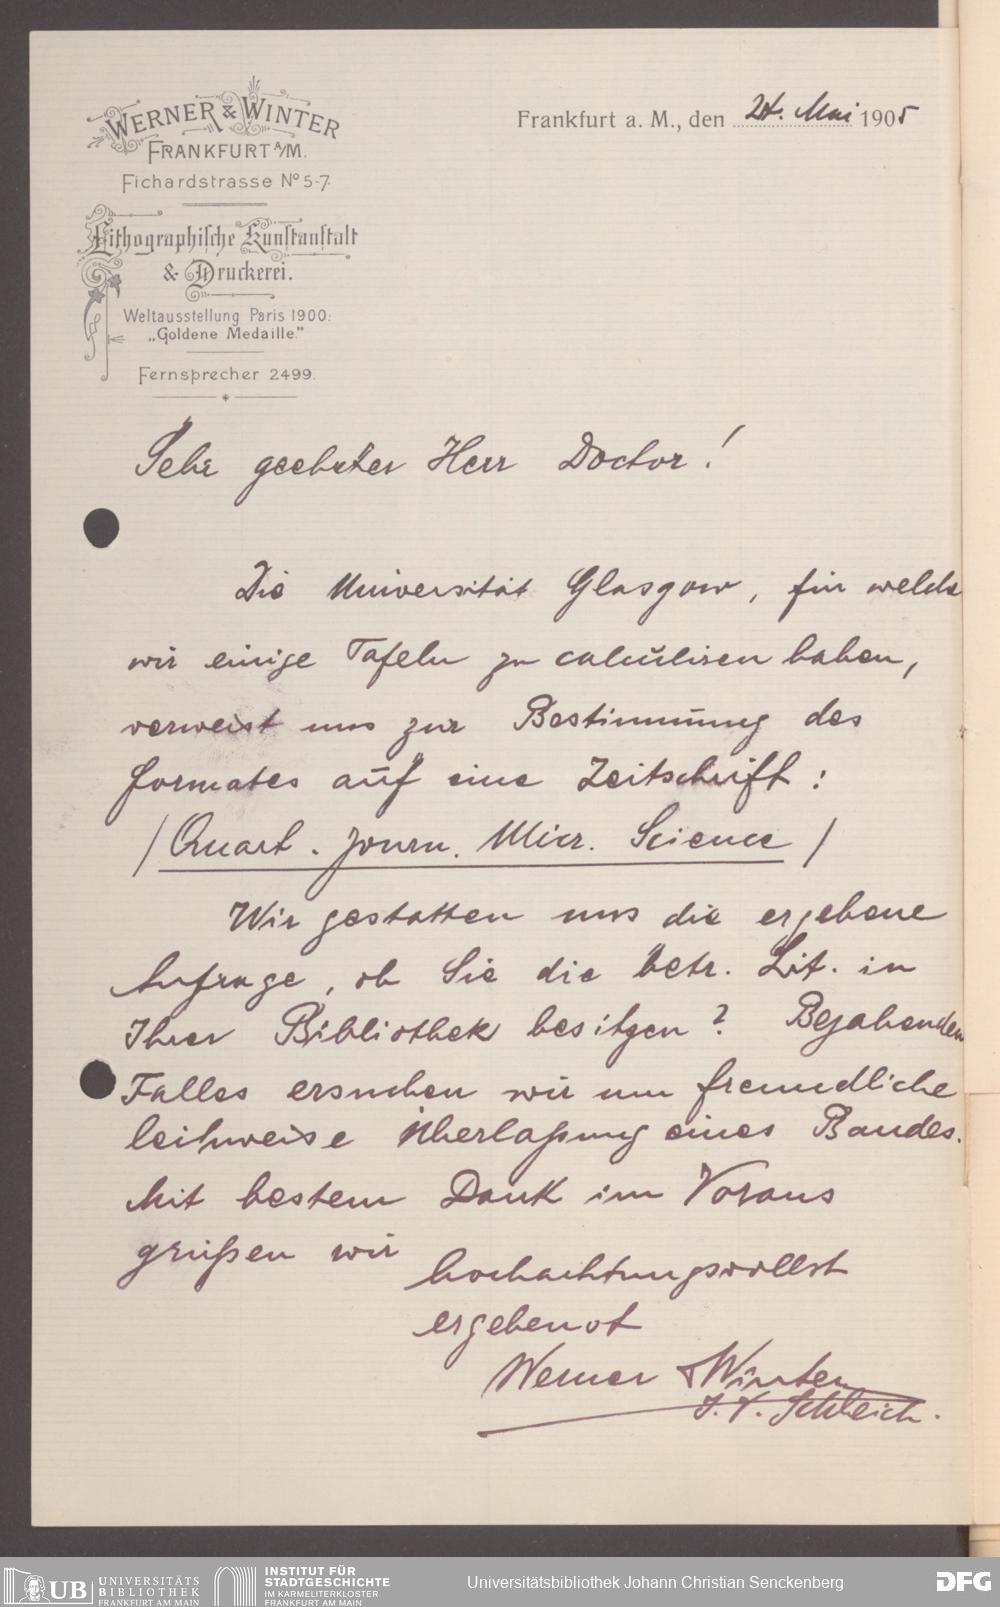 WERNER & WINTER
FRANKFURT A/M.
Fichardstrasse No 5-7.
Lithographische Kunstanstalt
& Druckerei.
Weltausstellung Paris 1900:
„Goldene Medaille."
Fernsprecher 2499.
Frankfurt a. M., den 24. Mai 1905
Sehr geehrter Herr Doctor!
Die Universität Glasgow, für welche
wir einige Tafeln zu calculiren haben,
verweist uns zur Bestimmung des
Formates auf eine Zeitschrift:
/ Quart. Journ. Micr. Science /
Wir gestatten uns die ergebene
Anfrage, ob Sie die betr. Lit. in
Ihrer Bibliothek besitzen? Bejahenden
Falles ersuchen wir um freundliche
leihweise Überlaßung eines Bandes.
Mit bestem Dank im Voraus
grüßen wir
hochachtungsvollst
ergebenst
Werner & Winter
J. V. Schleich.
UB UNIVERSITÄTS
BIBLIOTHEK
FRANKFURT AM MAIN
INSTITUT FÜR
STADTGESCHICHTE
IM KARMELITERKLOSTER
FRANKFURT AM MAIN
Universitätsbibliothek Johann Christian Senckenberg
DFG